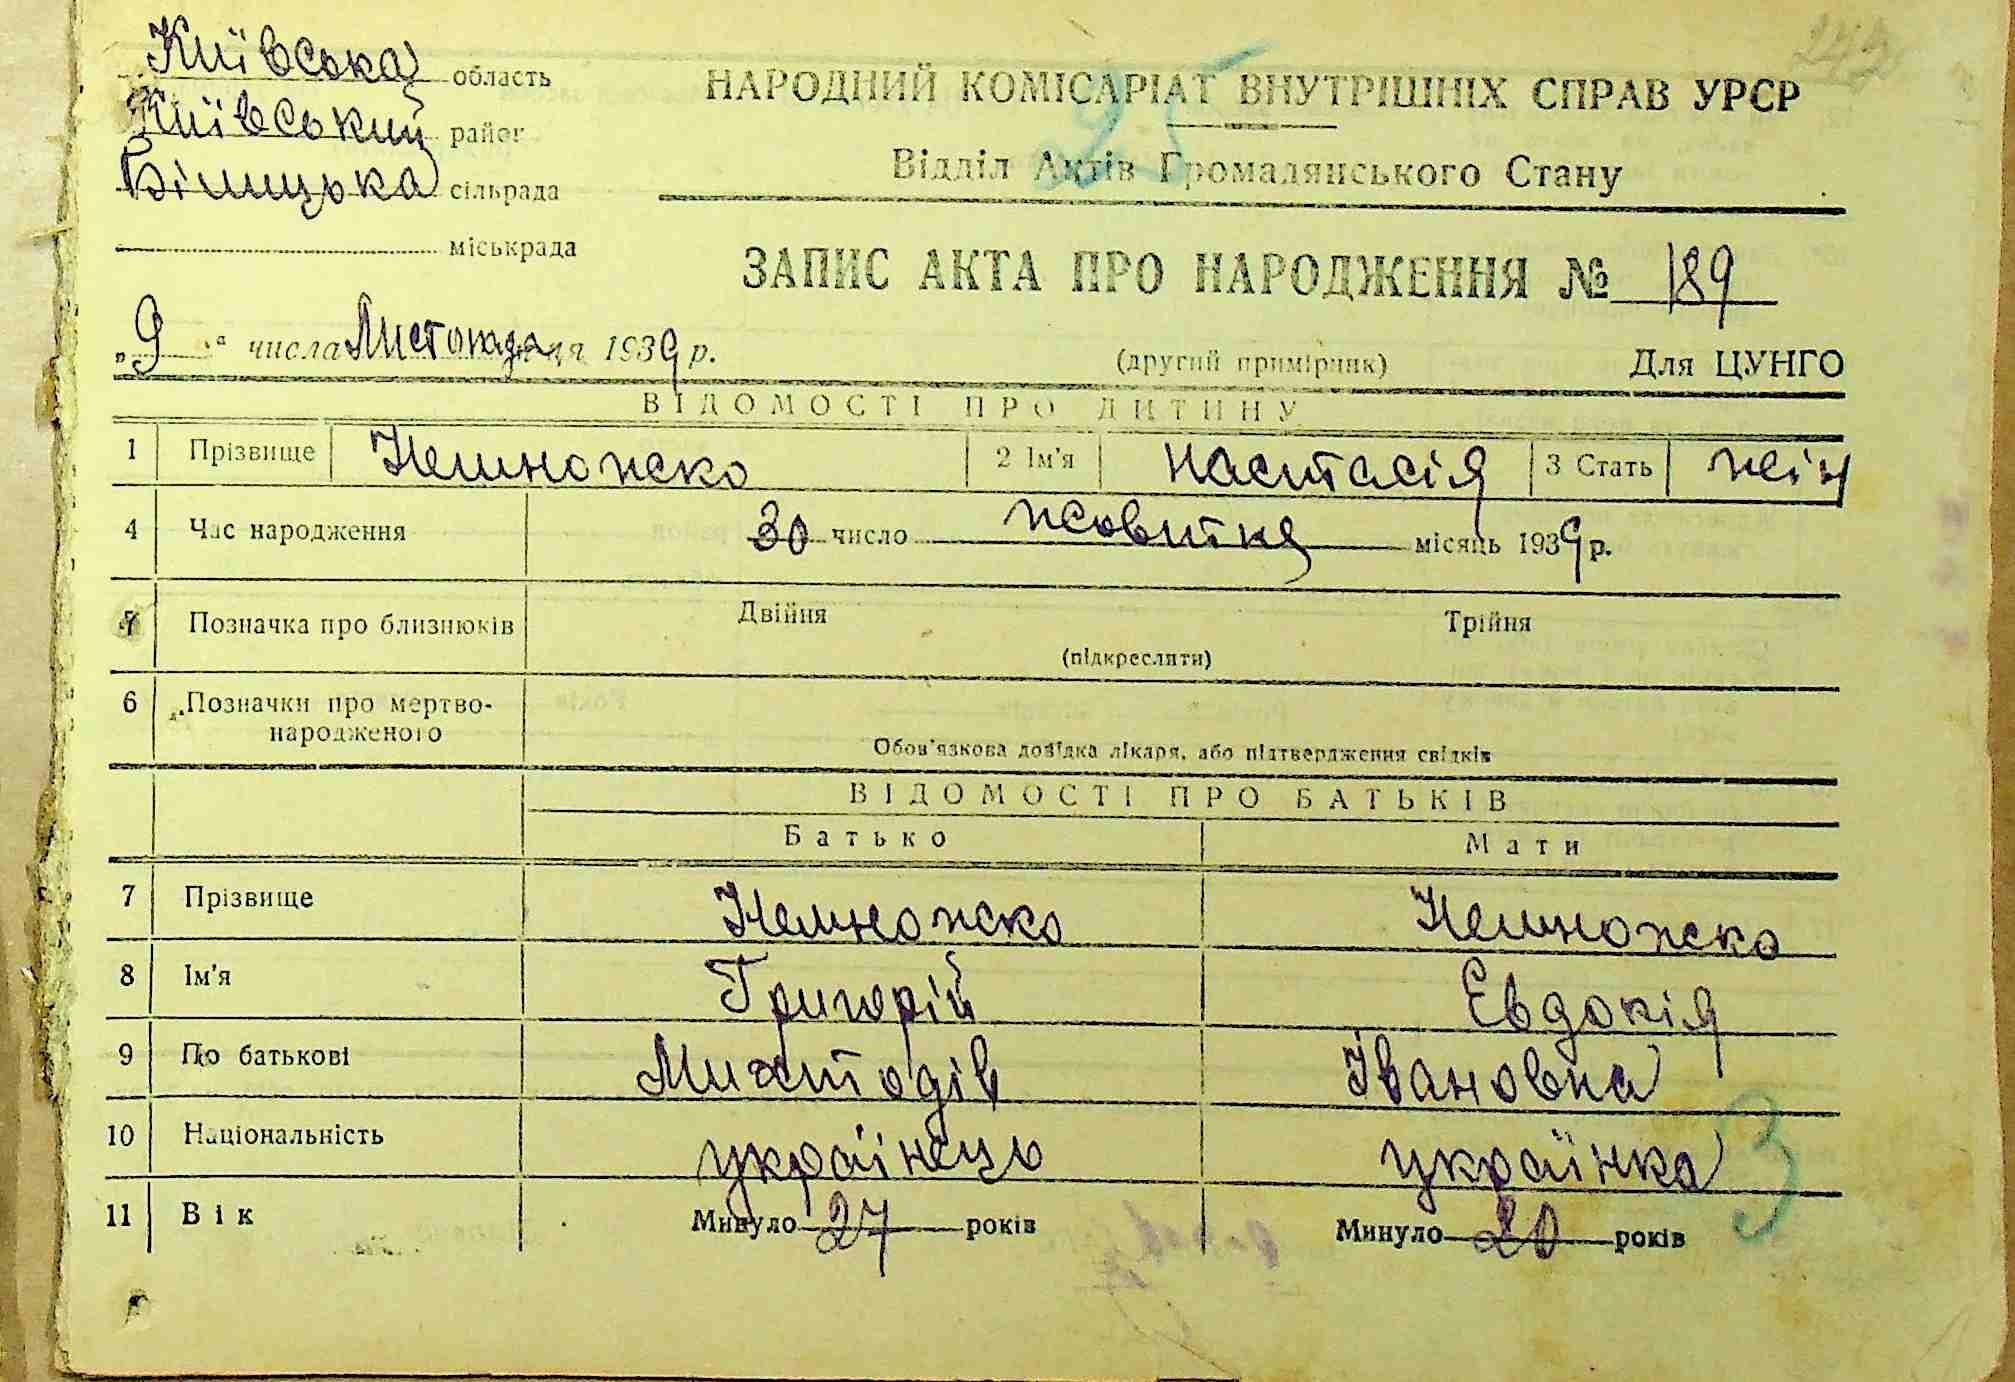 Київська область
Київський район
Білицька сільрада
міськрада
242
НАРОДНИЙ КОМІСАРІАТ ВНУТРІШНІХ СПРАВ УРСР
25
Відділ Актів Громадянського Стану
ЗАПИС АКТА ПРО НАРОДЖЕННЯ № 189
„9“ числа Листопада ця 1939 р.
(другий примірник) Для ЦУНГО
ВІДОМОСТІ ПРО ДИТИНУ
1 Прізвище Немножко 2 Ім'я Настасія 3 Стать жін
4 Час народження 30 число жовтня місяць 1939 р.
5 Позначка про близнюків Двійня Трійня
(підкреслити)
6 Позначки про мертво-
народженого
Обов'язкова довідка лікаря, або підтвердження свідків
ВІДОМОСТІ ПРО БАТЬКІВ
Батько Мати
7 Прізвище Немножко Немножко
8 Ім'я Григорій Евдокія
9 По батькові Михтодів Івановна
10 Національність українець українка
3
11 Вік Минуло 27 років Минуло 20 років